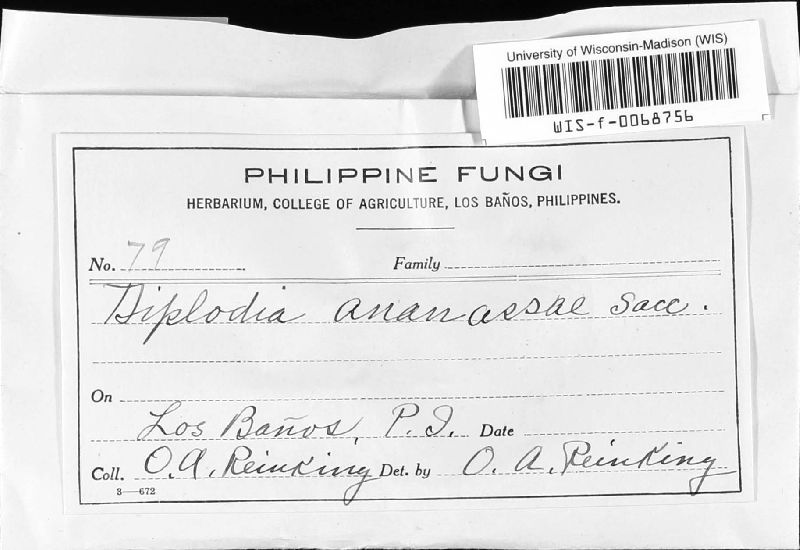 University of Wisconsin-Madison (WIS)
WIS-f-0068756
PHILIPPINE FUNGI
HERBARIUM, COLLEGE OF AGRICULTURE, LOS BAÑOS, PHILIPPINES.
No. 79 Family
Diplodia ananassae Sacc.
On
Los Baños, P.I. Date
Coll. O.A. Reinking Det. by O. A. Reinking
3—672